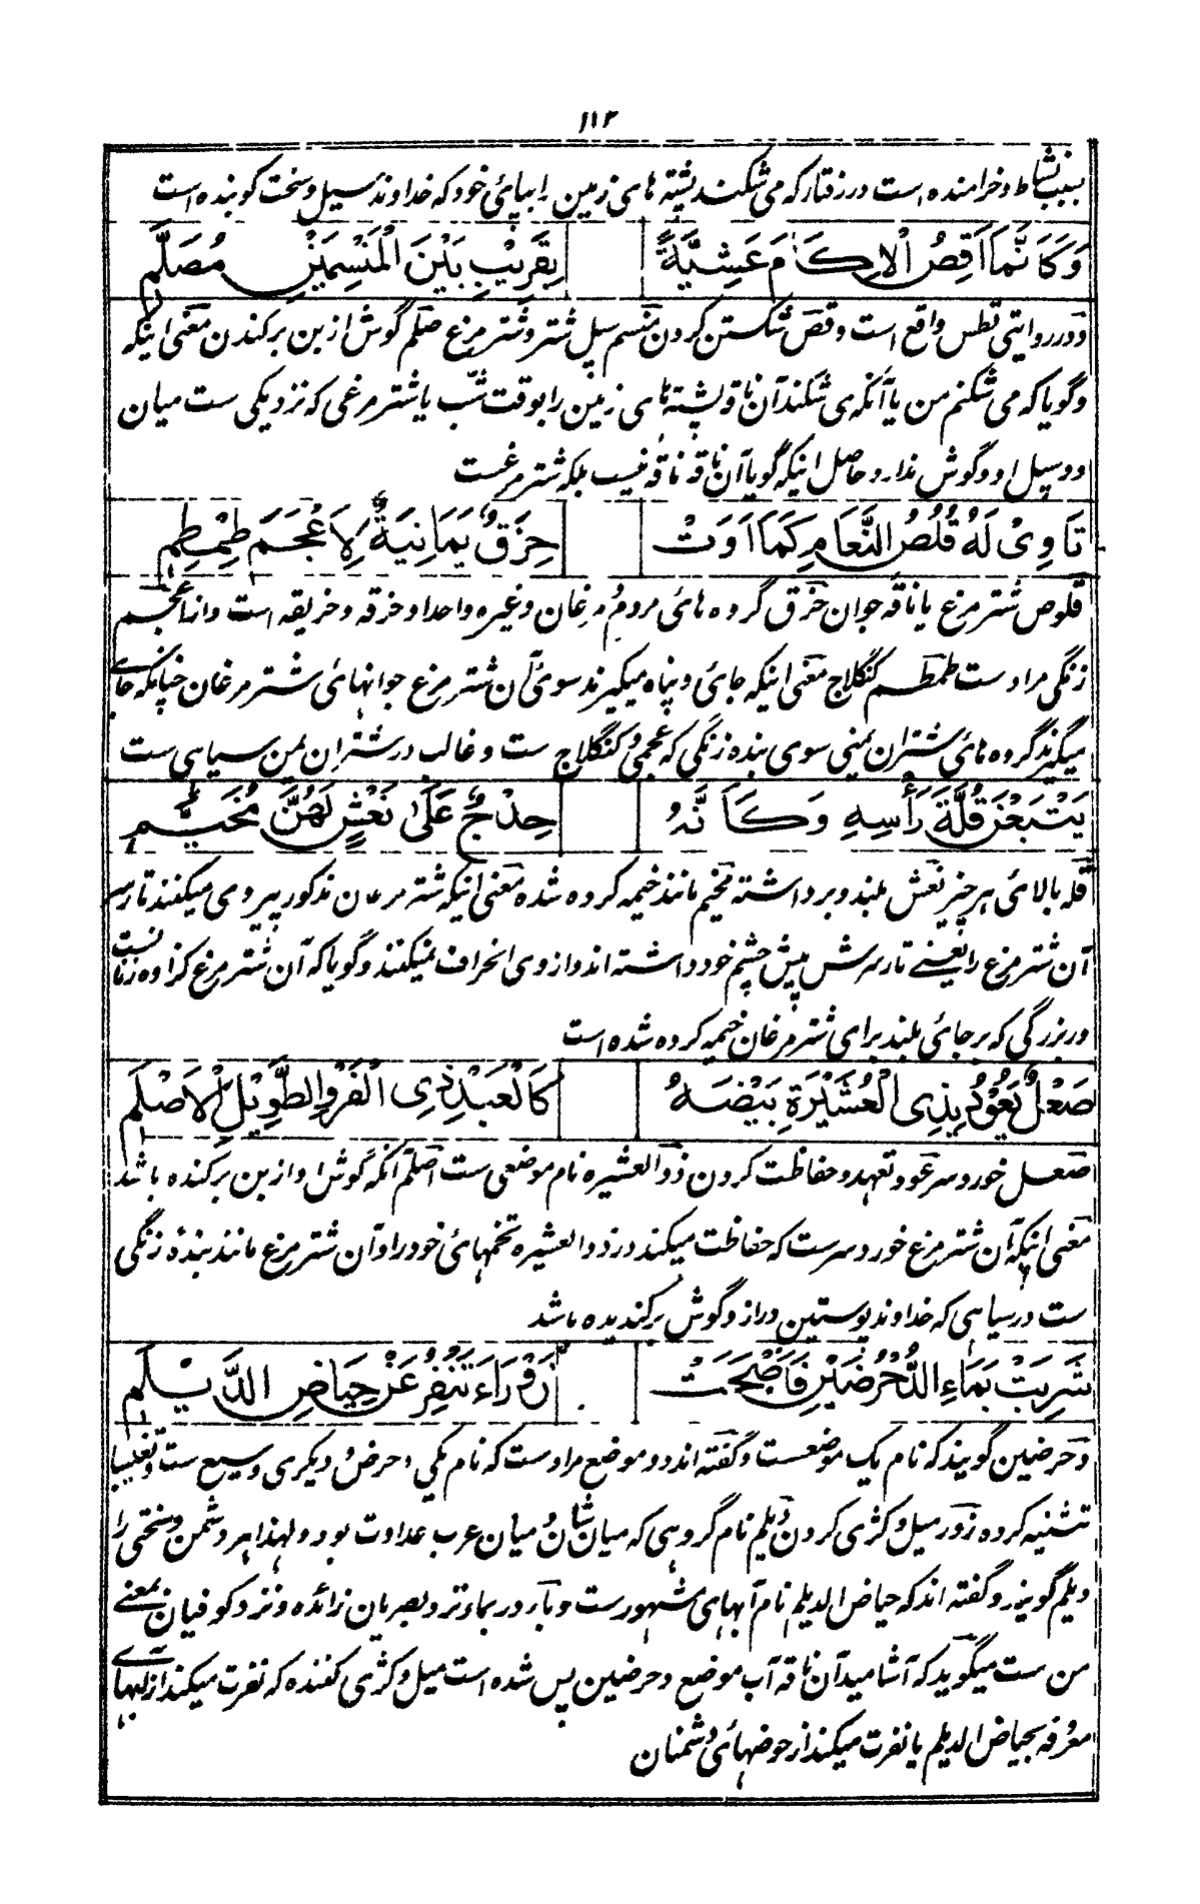 ۱۱۲
بسبب نشاط و خرامنده است در رفتار که می شکند پشته های زمین را بپائی خود که خداوند سیل و سخت کوبنده است
وَكَاَنَّمَا اَقِصُ الْاِكَامَ عَشِيَّةً بِقَرِيْبِ بَيْنَ الْمَنْسِمَيْنِ مُصَلَّمِ
و در روایتی تطس واقع است وقص شکستن کردن منسم سپل شتر و شتر مرغ صلم گوش از بن برکندن معنی اینکه
وگویا که می شکنم من یا آنکه می شکند آن ناقه پشته های زمین را بوقت شب یا شتر مرغی که نزدیکی ست میان
دو سپل او و گوش ندارد حاصل اینکه گویا آن ناقه ناقه نیست بلکه شتر مرغست
تَاْوِيْ لَهُ قُلُصُ النَّعَامِ كَمَا اَوَتْ حِزَقٌ يَمَانِيَةٌ لِاَعْجَمَ طِمْطِمِ
قلوص شتر مرغ یا ناقه جوان حزق گروه های مردم و مرغان و غیره واحد او حزقه و حزیقه است و از اعجم
زنگی مراد ست طمطم کنگلاج معنی اینکه جائی و پناه میگیرند سوی آن شتر مرغ جوانهائی شتر مرغان چنانکه جای
میگیرند گروه های شتران یمنی سوی بنده زنگی که عجمی و کنگلاج ست و غالب در شتران یمن سیاهی ست
يَتْبَعْنَ قُلَّةَ رَأْسِهِ وَكَاَنَّهُ حِدْجٌ عَلَى نَعْشٍ لَهُنَّ مُخَيَّمِ
قله بالائی هر چیز نعش بلند و برداشته مخیم مانند خیمه کرده شده معنی اینکه شتر مرغان مذکور پیروی میکنند تا رسر
آن شتر مرغ را یعنی تارسرش پیش چشم خود داشته اند و از وی انحراف نمیکنند و گویا که آن شتر مرغ کژاوه زنانست
در بزرگی که بر جائی بلند برای شتر مرغان خیمه کرده شده است
صَعْلٌ يَعُوْدُ بِذِى الْعُشَيْرَةِ بَيْضَهُ كَالْعَبْدِ ذِى الْفَرْوِ الطَّوِيْلِ الْاَصْلَمِ
صعل خورد سر عود تعهد و حفاظت کردن ذوالعشیره نام موضعی ست اصلم آنکه گوش او از بن برکنده باشد
معنی اینکه آن شتر مرغ خورد سرست که حفاظت میکند در ذوالعشیره تخمهائی خود را و آن شتر مرغ مانند بنده زنگی
ست در سیاهی که خداوند پوستین دراز و گوش برکندیده باشد
شَرِبَتْ بِمَاءِ الدُّحْرُضَيْنِ فَاَصْبَحَتْ زَوْرَاءَ تَنْفِرُ عَنْ حِيَاضِ الدَّيْلَمِ
دحرضین گویند که نام یک موضعست و گفته اند دو موضع مراد ست که نام یکی دحرض و دیگری وسیع ست و تغلیبا
تثنیه کرده زور میل و کژی کردن دیلم نام گروهی که میان شان و میان عرب عداوت بود و لهذا هر دشمن و سختی را
دیلم گویند و گفته اند که حیاض الدیلم نام آبهای مشهورست و با در بماء نزد بصریان زائده و نزد کوفیان بمعنی
من ست میگوید که آشامید آن ناقه آب موضع دحرضین پس شده است میل و کژی کننده که نفرت میکند از آبهای
معروفه بحیاض الدیلم یا نفرت میکند از حوضهائی دشمنان